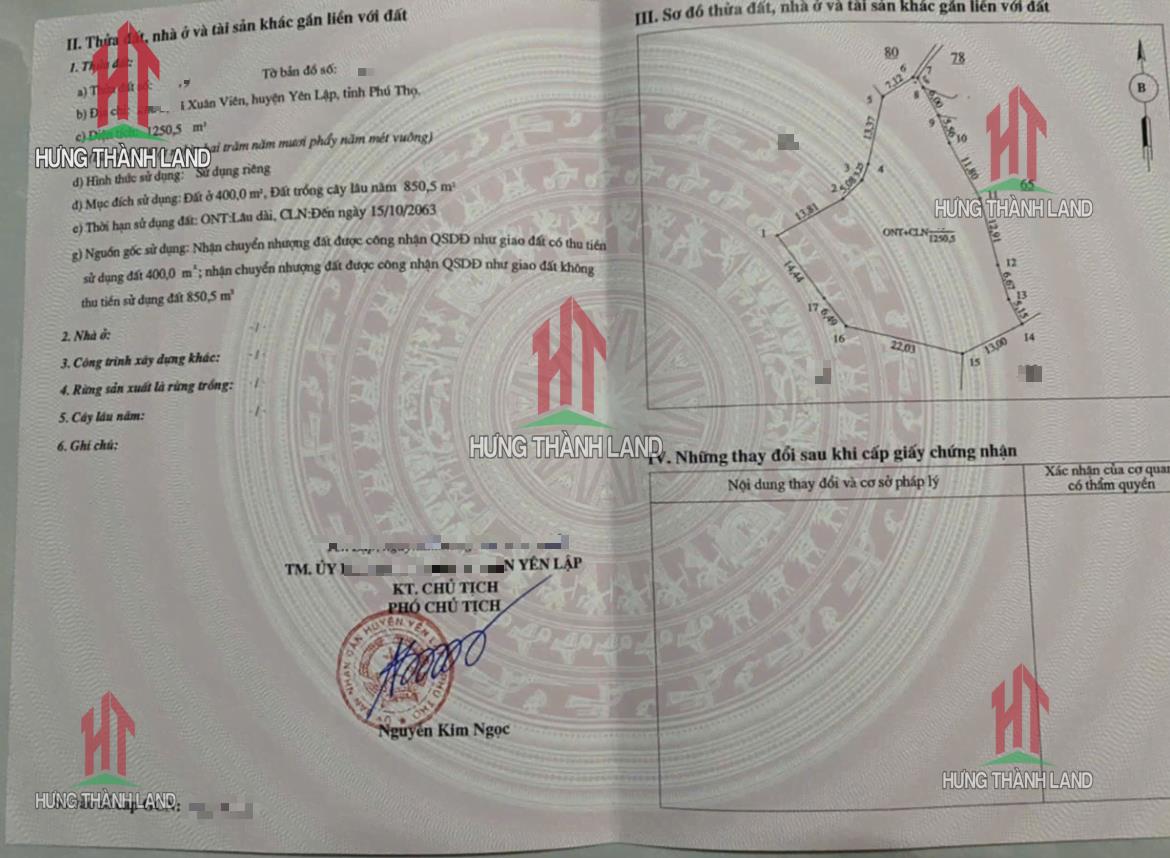 II. Thửa đất, nhà ở và tài sản khác gắn liền với đất
1. Thửa đất:
a) Thửa đất số: Tờ bản đồ số:
b) Địa chỉ: Xuân Viên, huyện Yên Lập, tỉnh Phú Thọ.
c) Diện tích: 1250,5 m²
hai trăm năm mươi phẩy năm mét vuông)
d) Hình thức sử dụng: Sử dụng riêng
đ) Mục đích sử dụng: Đất ở 400,0 m², Đất trồng cây lâu năm 850,5 m²
e) Thời hạn sử dụng đất: ONT:Lâu dài, CLN:Đến ngày 15/10/2063
g) Nguồn gốc sử dụng: Nhận chuyển nhượng đất được công nhận QSDĐ như giao đất có thu tiền
sử dụng đất 400,0 m²; nhận chuyển nhượng đất được công nhận QSDĐ như giao đất không
thu tiền sử dụng đất 850,5 m²
2. Nhà ở: -/-
3. Công trình xây dựng khác: -/-
4. Rừng sản xuất là rừng trồng: -/-
5. Cây lâu năm: -/-
6. Ghi chú:
TM. ỦY N YÊN LẬP
KT. CHỦ TỊCH
PHÓ CHỦ TỊCH
Nguyễn Kim Ngọc
GCN:
III. Sơ đồ thửa đất, nhà ở và tài sản khác gắn liền với đất
80
78
6
7
7,12
5
8
6,00
9
5,56
10
13,37
B
3
4
3,25
5,08
2
11,80
65
11
13,81
1
ONT+CLN
1250,5
12,91
12
14,44
6,67
13
17
6,49
5,15
14
16
22,03
13,00
15
IV. Những thay đổi sau khi cấp giấy chứng nhận
Nội dung thay đổi và cơ sở pháp lý
Xác nhận của cơ quan
có thẩm quyền
HƯNG THÀNH LAND
HƯNG THÀNH LAND
HƯNG THÀNH LAND
HƯNG THÀNH LAND
HƯNG THÀNH LAND